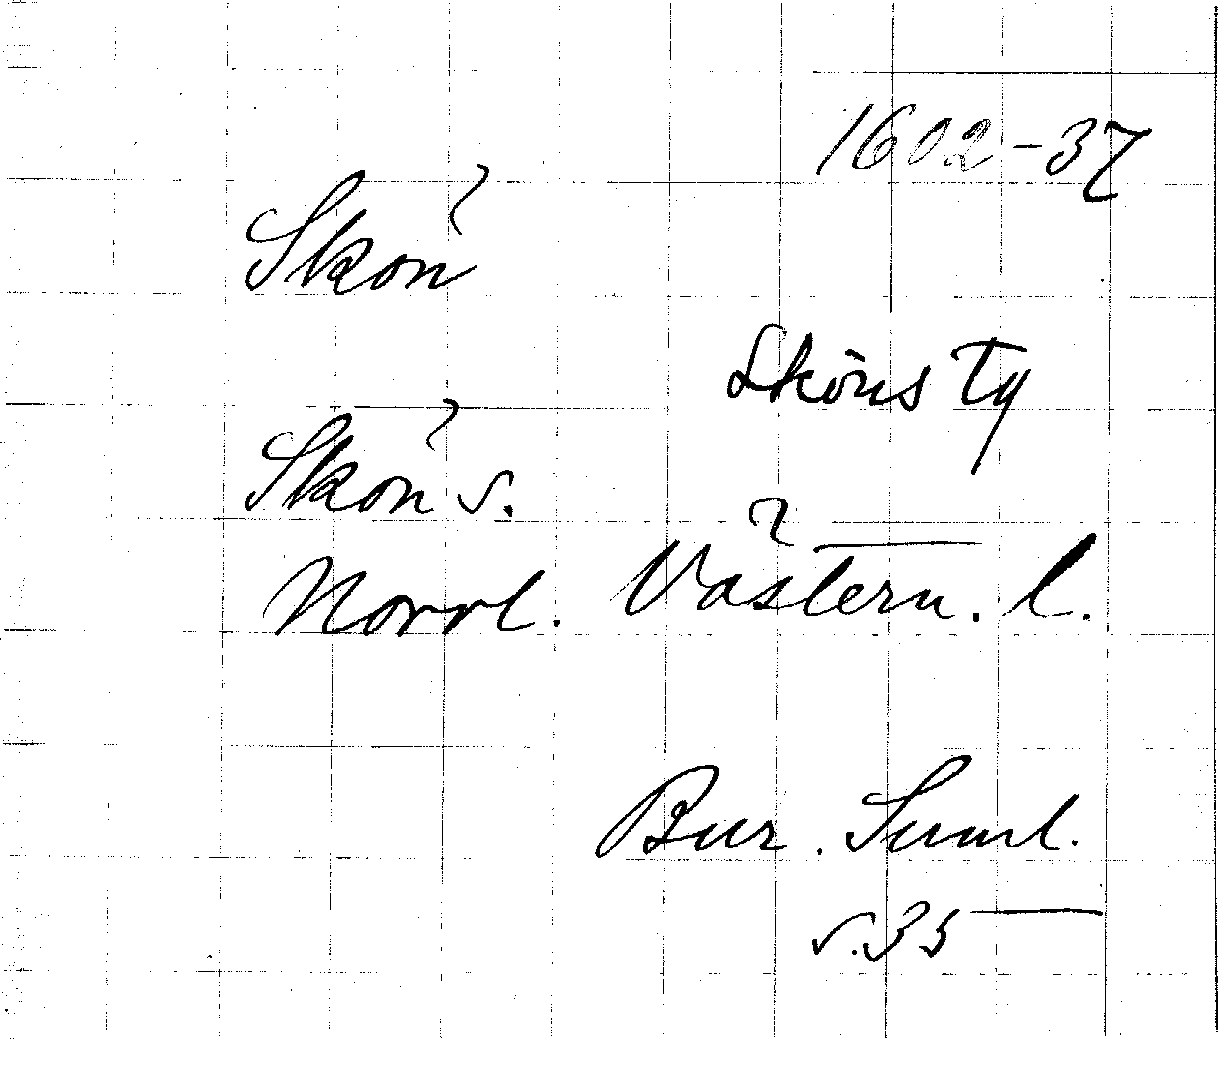 1602-37
Skön
Sköns Ty
Skön s.
Norrl. Västern. l.
Bur. Suml.
s. 35